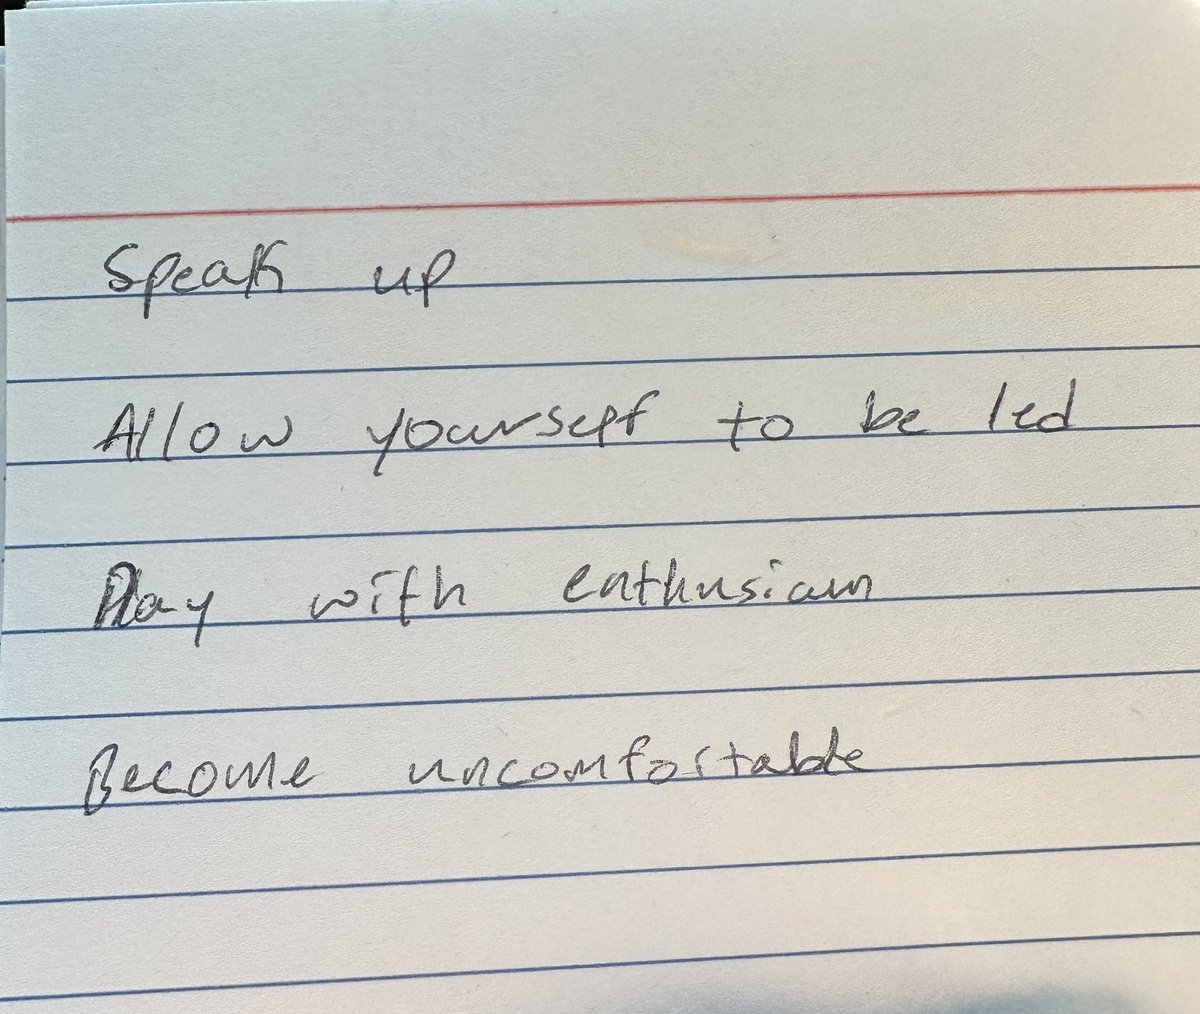 Speak up
Allow yourself to be led
Play with enthusiam
Become uncomfortable